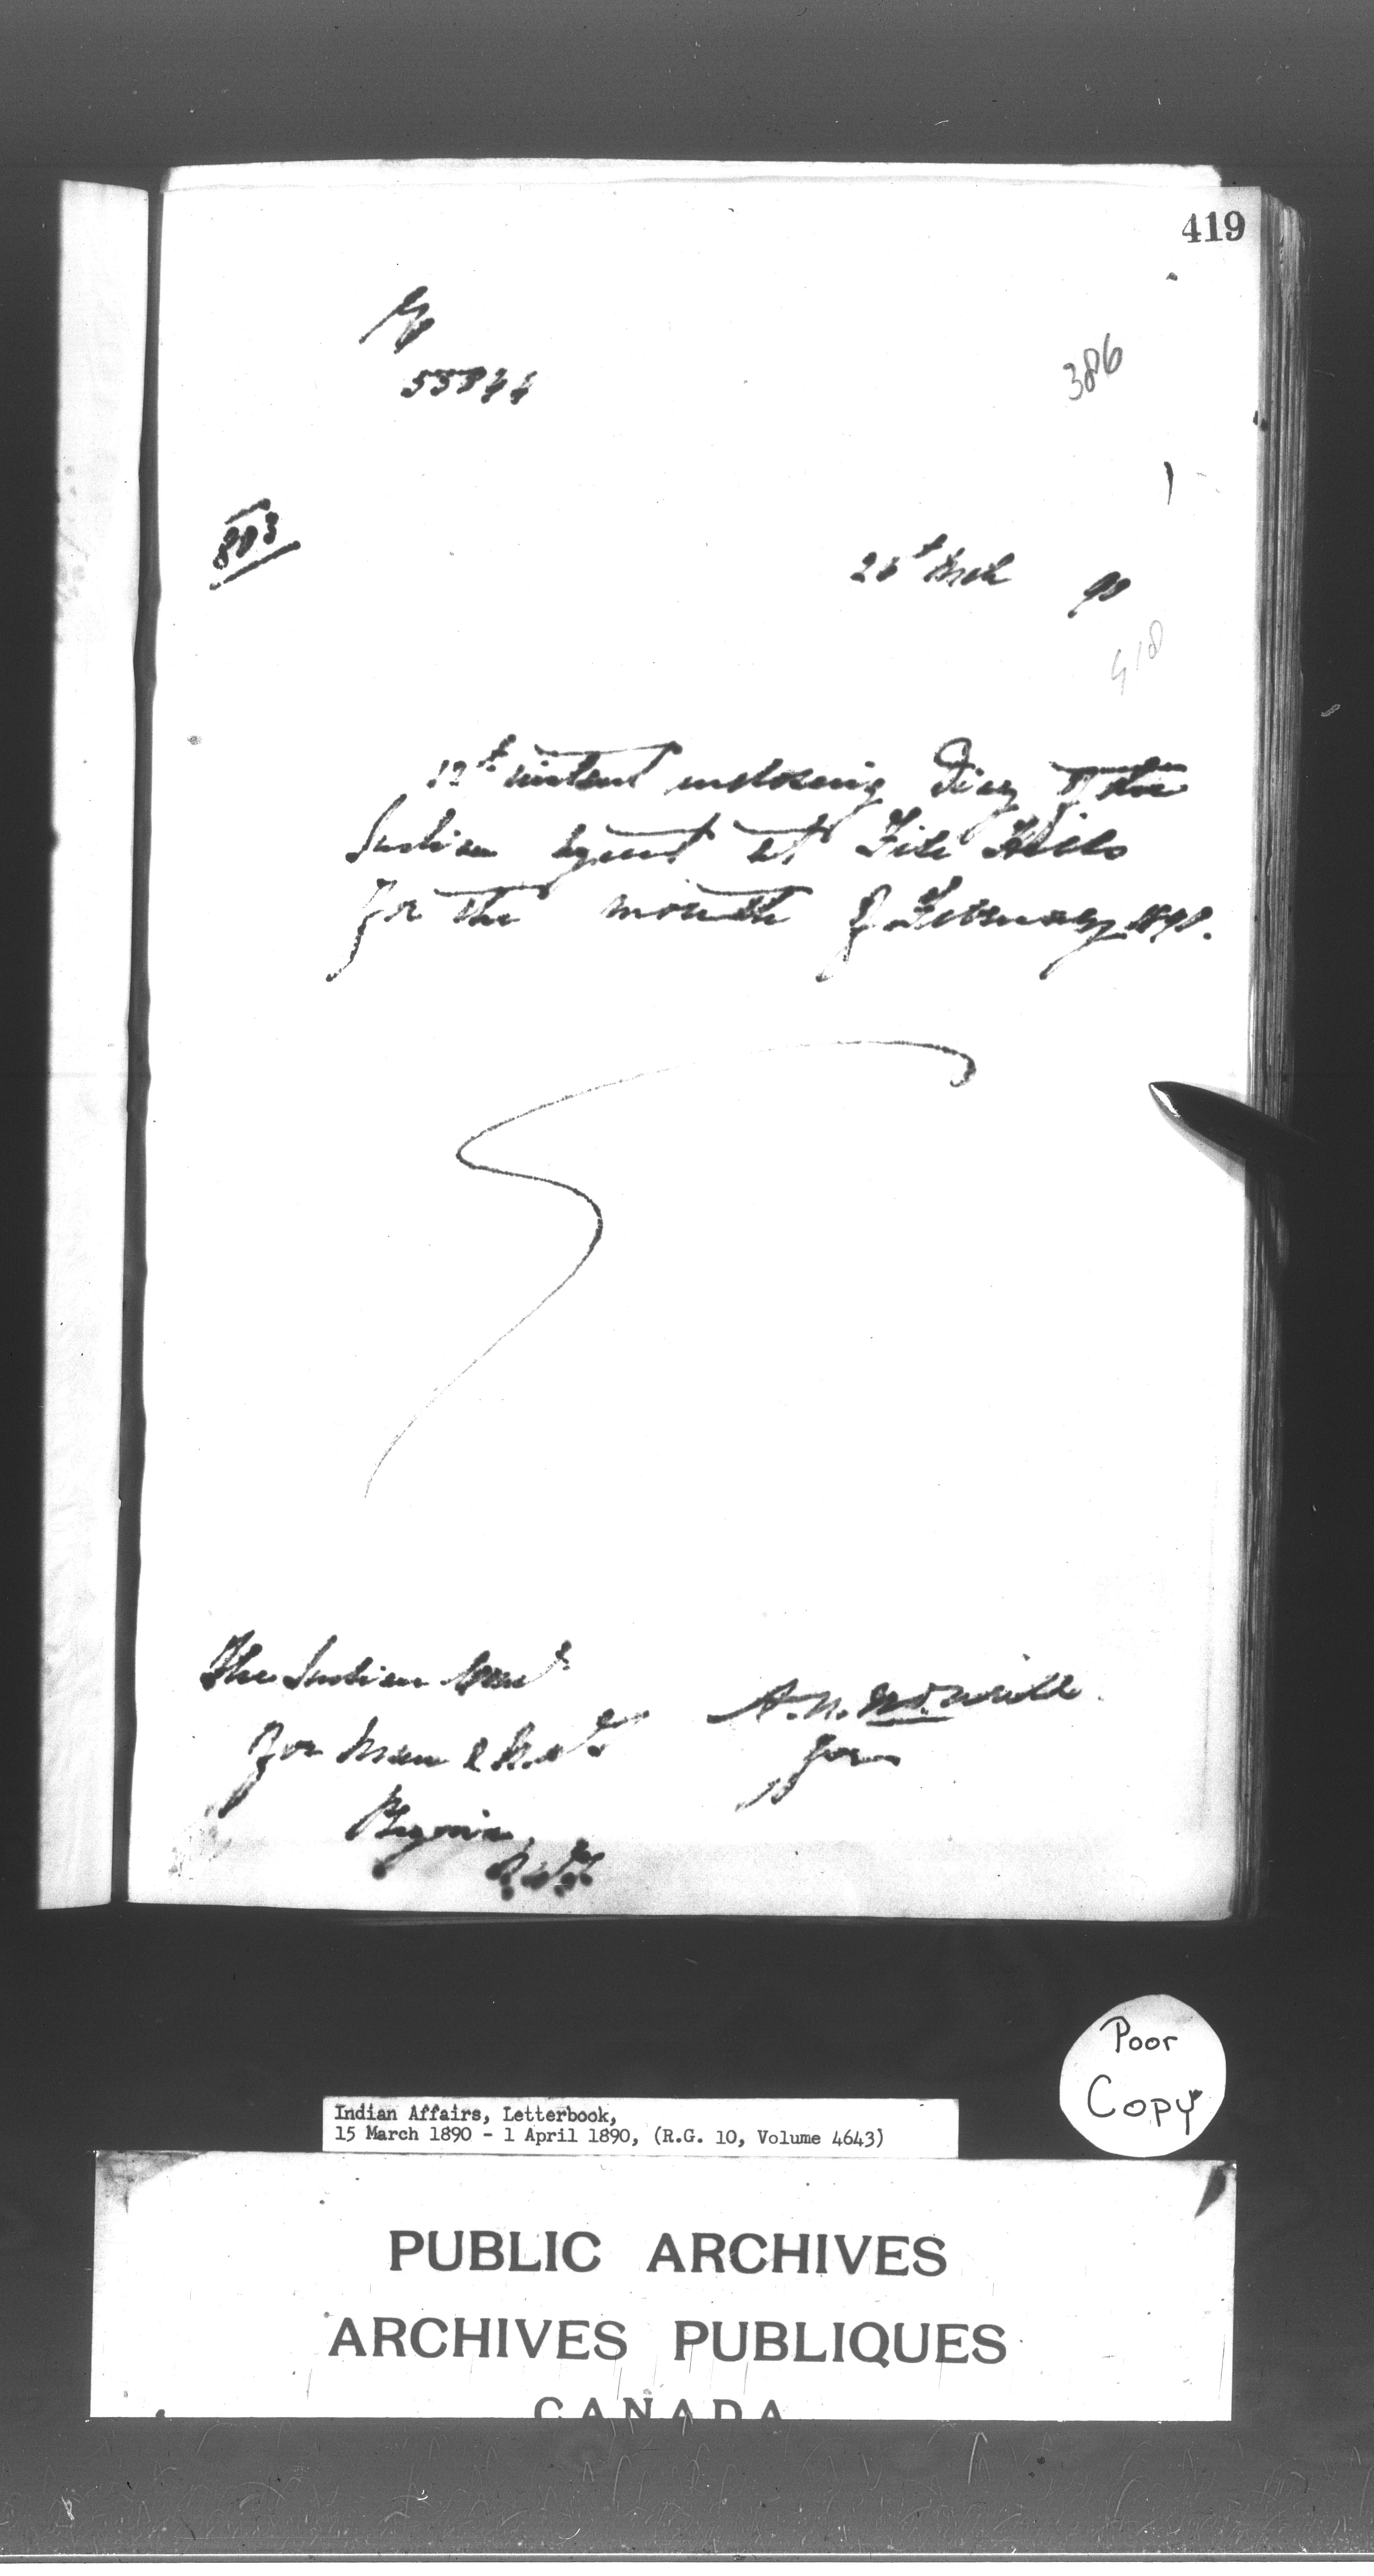 419
386
803
25t Mch 90
418
12t instant enclosing Diary of the
Indian Agent at File Hills
for the month of February 1890.
The Indian Comr
for Man &
A. N. McNeill
for
Regina,
Poor
Copy
Indian Affairs, Letterbook,
15 March 1890 - 1 April 1890, (R.G. 10, Volume 4643)
PUBLIC ARCHIVES
ARCHIVES PUBLIQUES
CANADA